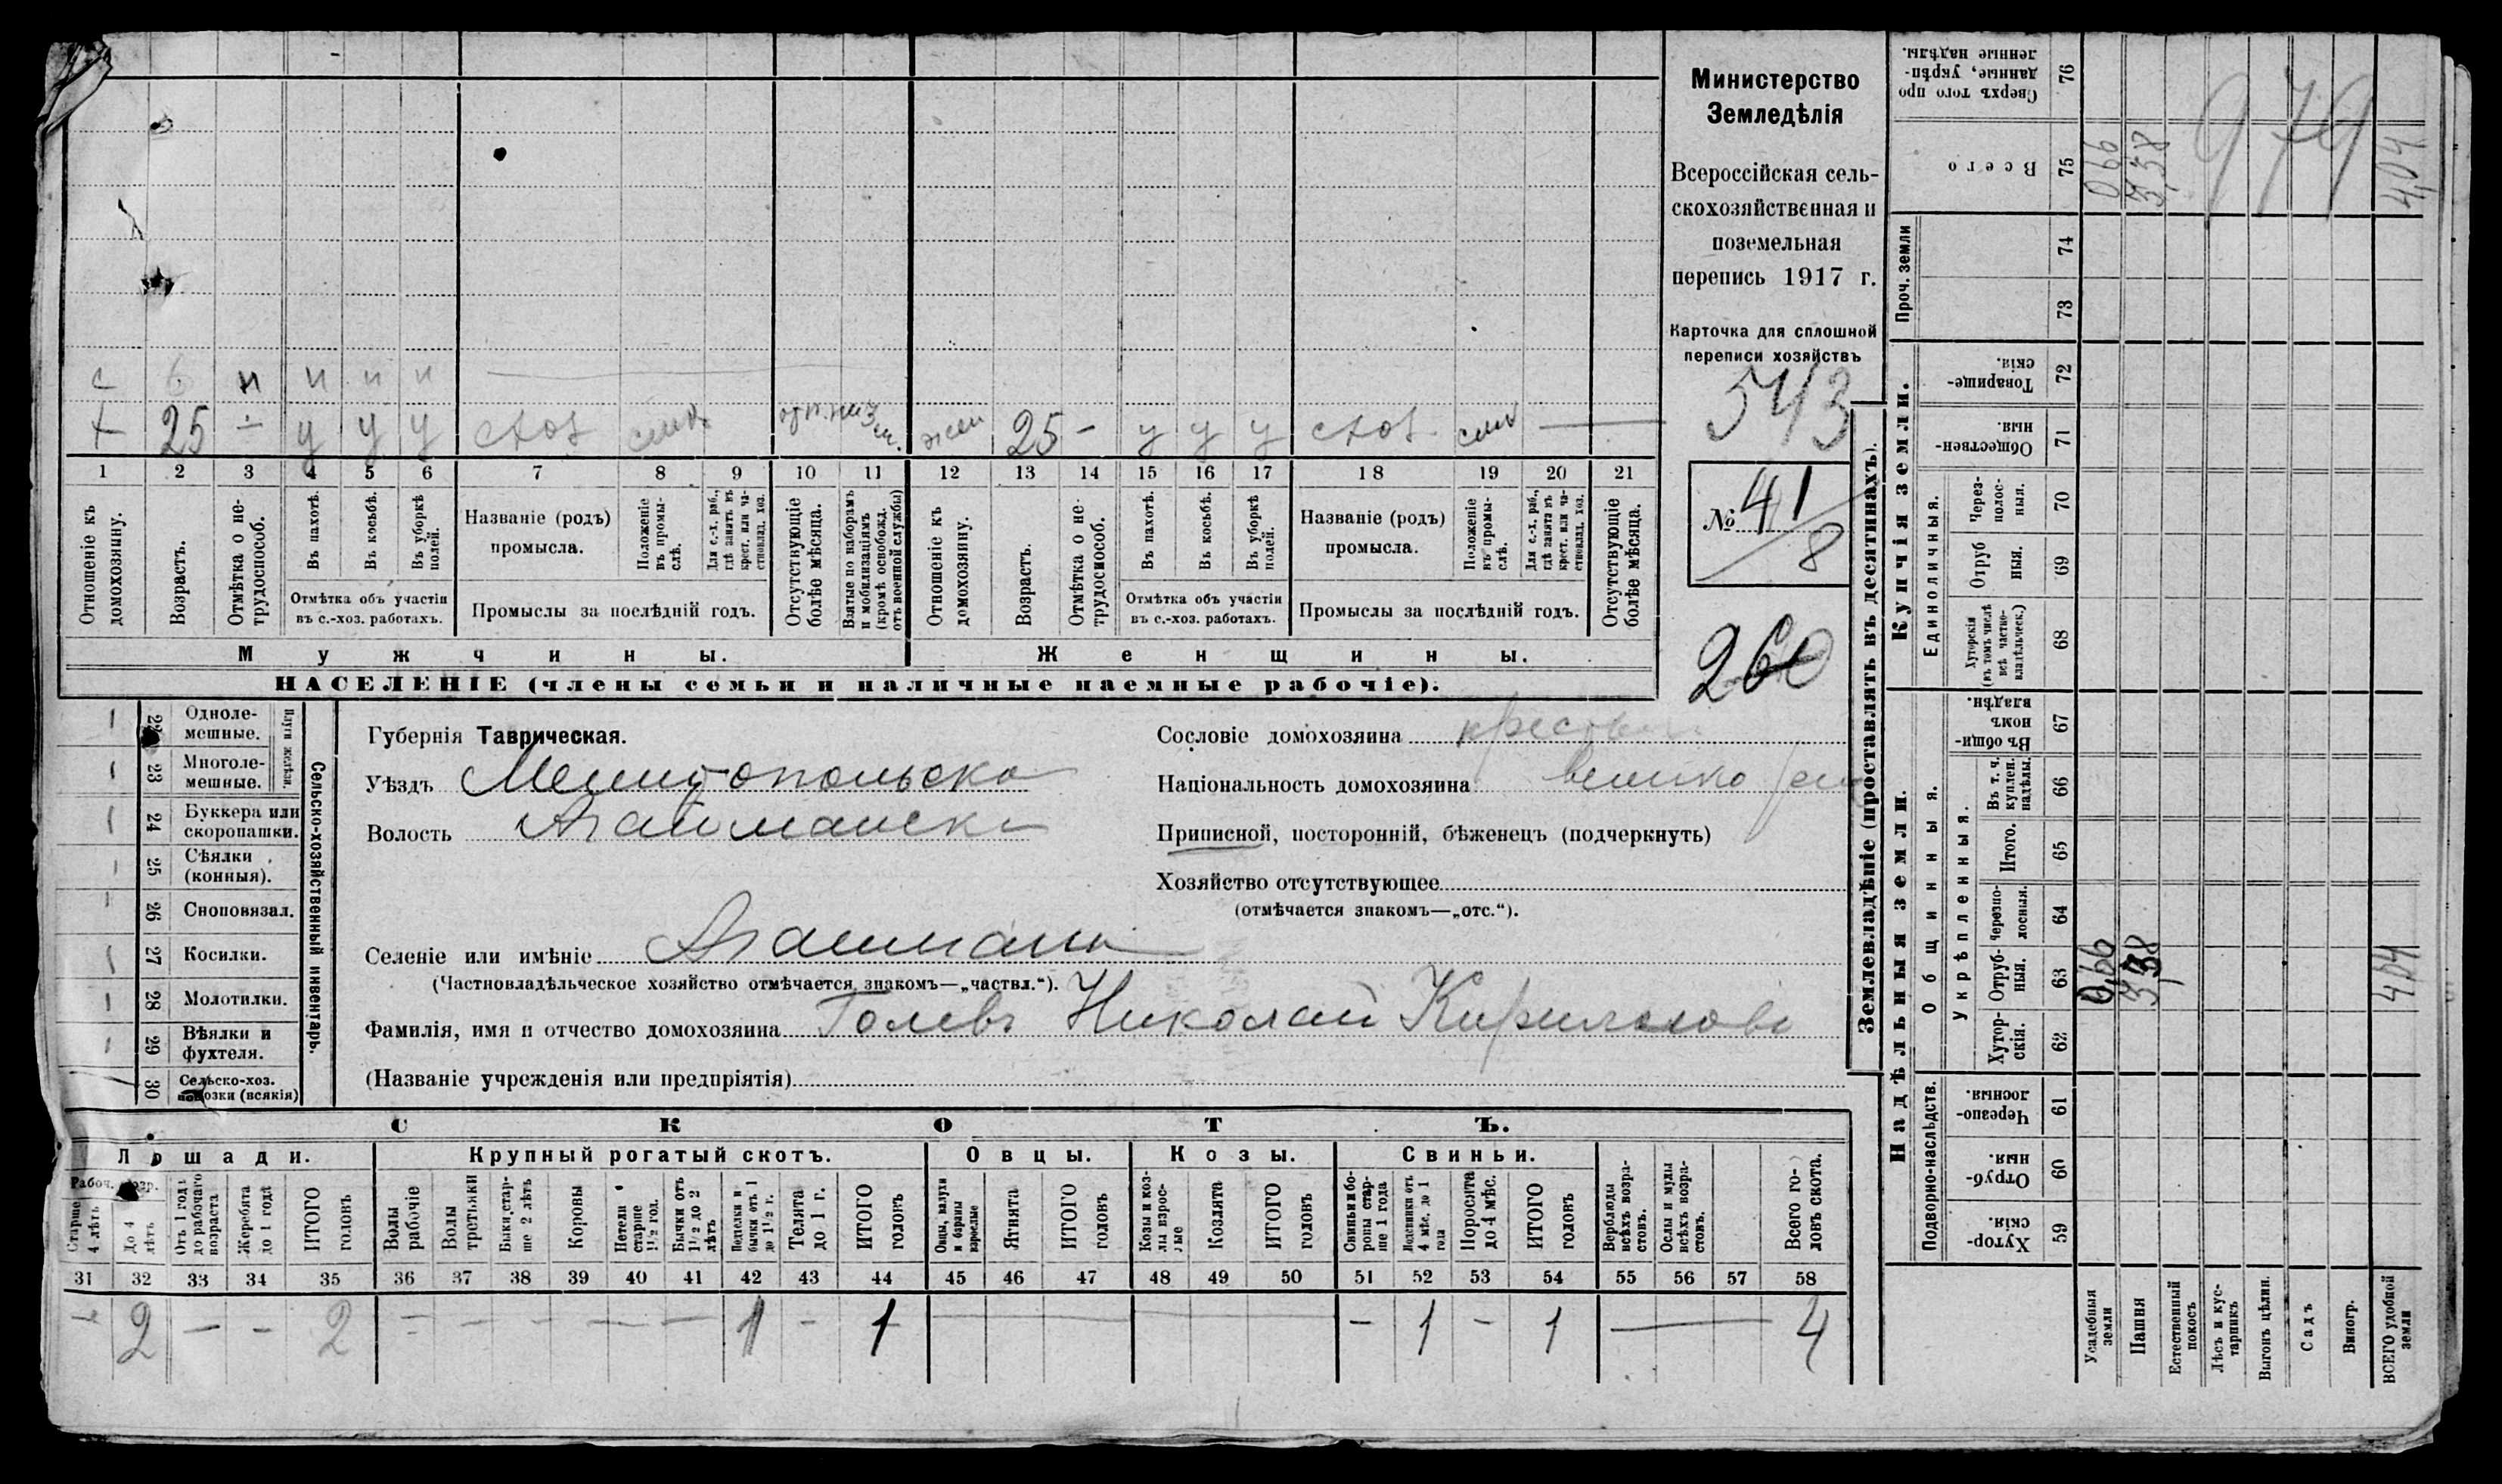 Министерство
Земледѣлія
Всероссійская сель-
скохозяйственная и
поземельная
перепись 1917 г.
Карточка для сплошной
переписи хозяйствъ
543
№ 41/8
260
с 6 н н н н
+ 25 ÷ у у у
жен 25 - у у у
1 2 3 4 5 6 7 8 9 10 11 12 13 14 15 16 17 18 19 20 21
Отношеніе къ домохозяину.
Возрастъ.
Отмѣтка о не-трудоспособ.
Въ пахотѣ.
Въ косьбѣ.
Въ уборкѣ полей.
Отмѣтка объ участіи
въ с.-хоз. работахъ.
Названіе (родъ)
промысла.
Положеніе въ промы-слѣ.
Для с.-х. раб., гдѣ занятъ въ крест. или ча-стновлад. хоз.
Промыслы за послѣдній годъ.
Отсутствующіе болѣе мѣсяца.
Взятые по наборамъ и мобилизаціямъ (кромѣ освобожд. отъ военной службы)
Отношеніе къ домохозяину.
Возрастъ.
Отмѣтка о не-трудоспособ.
Въ пахотѣ.
Въ косьбѣ.
Въ уборкѣ полей.
Отмѣтка объ участіи
въ с.-хоз. работахъ.
Названіе (родъ)
промысла.
Положеніе въ промы-слѣ.
Для с.-х. раб., гдѣ занята въ крест. или ча-стновлад. хоз.
Промыслы за послѣдній годъ.
Отсутствующіе болѣе мѣсяца.
Мужчины.
Женщины.
НАСЕЛЕНІЕ (члены семьи и наличные наемные рабочіе).
Сельско-хозяйственный инвентарь.
22 Одноле-мешные.
23 Многоле-мешные.
24 Буккера или скоропашки.
25 Сѣялки (конныя).
26 Сноповязал.
27 Косилки.
28 Молотилки.
29 Вѣялки и фухтеля.
30 Сельско-хоз. повозки (всякія)
Губернія Таврическая.
Уѣздъ Мелитопольско
Волость Агайманска
Селеніе или имѣніе Агайманы
(Частновладѣльческое хозяйство отмѣчается знакомъ—„частвл.“).
Фамилія, имя и отчество домохозяина Голевъ Николай Кирилловъ
(Названіе учрежденія или предпріятія)
Сословіе домохозяина крестьян
Національность домохозяина велико
Приписной, посторонній, бѣженецъ (подчеркнуть)
Хозяйство отсутствующее
(отмѣчается знакомъ—„отс.“).
СКОТЪ.
Лошади.
Крупный рогатый скотъ.
Овцы.
Козы.
Свиньи.
Рабоч. возр.
Старше 4 лѣтъ
До 4 лѣтъ
Отъ 1 года до рабочаго возраста
Жеребята до 1 года
ИТОГО головъ
Волы рабочіе
Волы третьяки
Быки стар-ше 2 лѣтъ
Коровы
Нетели старше 1 1/2 год.
Бычки отъ 1 1/2 до 2 лѣтъ
Подтелки и бычки отъ 1 до 1 1/2 г.
Телята до 1 г.
ИТОГО головъ
Овцы, валухи и бараны взрослые
Ягнята
ИТОГО головъ
Козы и коз-лы взрос-лые
Козлята
ИТОГО головъ
Свиньи и бо-ровы стар-ше 1 года
Подсвинки отъ 4 мѣс. до 1 года
Поросята до 4 мѣс.
ИТОГО головъ
Верблюды всѣхъ возра-стовъ.
Ослы и мулы всѣхъ возра-стовъ.
Всего го-ловъ скота.
31 32 33 34 35 36 37 38 39 40 41 42 43 44 45 46 47 48 49 50 51 52 53 54 55 56 57 58
2 — - 2 - - - - — — 1 - 1 — — - 1 - 1 — 4
Землевладѣніе (проставлять въ десятинахъ).
Надѣльныя земли.
Купчія земли.
Проч. земли
Подворно-наслѣдств.
Общинныя.
Укрѣпленныя.
Единоличныя.
Сверхъ того про данные, укрѣп-ленные надѣлы. 76
Всего 75
74
73
Товарище-скія. 72
Обществен-ныя. 71
Через-полос-ныя. 70
Отруб ныя. 69
Хуторскія (въ томъ числѣ всѣ частно-владѣльческ.) 68
Въ общин-номъ владѣн. 67
Въ т. ч. куплен. надѣлы. 66
Итого. 65
Черезпо-лосныя. 64
Отруб-ныя. 63
Хутор-скія. 62
Черезпо-лосныя. 61
Отруб-ныя. 60
Хутор-скія. 59
066
3,38
979
4,04
0,66
3,38
4,04
Усадебныя земли
Пашня
Естественный покосъ
Лѣсъ и кус-тарникъ
Выгонъ цѣлин.
Садъ
Виногр.
ВСЕГО удобной земли